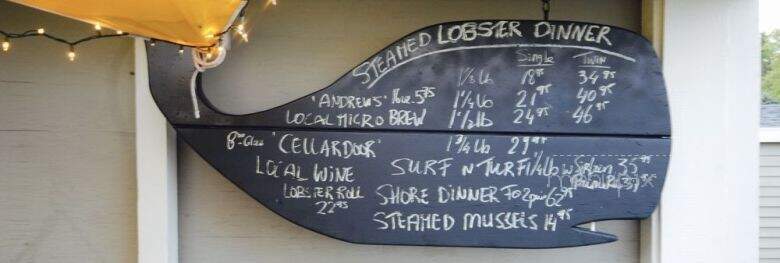 STEAMED LOBSTER DINNER
Single Twin
1 1/8 Lb 18⁹⁵ 34⁹⁵
'ANDREWS' 16oz. 5⁹⁵ 1 1/4 Lb 21⁹⁵ 40⁹⁵
LOCAL MICRO BREW 1 1/2 lb 24⁹⁵ 46⁹⁵
'CELLARDOOR' 1 3/4 Lb 29⁹⁵
LOCAL WINE SURF N TURF 1 1/4 lb w Sirloin 35⁹⁵
LOBSTER ROLL SHORE DINNER FOR 62⁹⁵
22⁹⁵ STEAMED MUSSELS 14⁹⁵